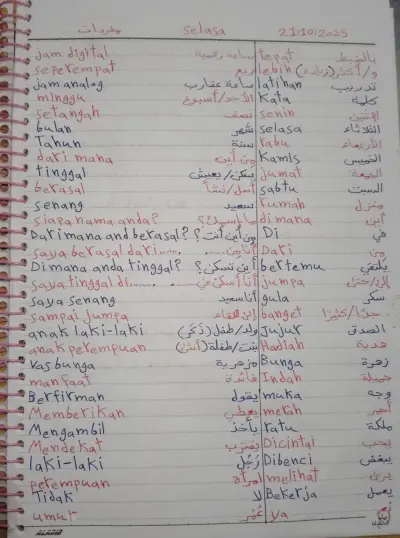 مفردات selasa 21/10/2025
jam digital ساعة رقمية tepat بالضبط
seperempat ربع lebih و/أكثر (زيادة)
jam analog ساعة عقارب latihan تدريب
minggu الأحد/أسبوع kata كلمة
setangah نصف senin الإثنين
bulan شهر selasa الثلاثاء
Tahun سنة rabu الأربعاء
dari mana من أين Kamis الخميس
tinggal يسكن/يعيش jumat الجمعة
berasal أصل/نشأ sabtu السبت
senang سعيد rumah منزل
siapa nama anda? ما إسمك؟ di mana أين
Dari mana and berasal? من أين أنت؟ Di في
saya berasal dari..... أنا من... Dari من
Di mana anda tinggal? أين تسكن؟ bertemu يلتقي
saya tinggal di...... أنا أسكن في... Jumpa
saya senang أنا سعيد gula سكر
sampai jumpa إلى اللقاء banget جدًا/كثيرًا
anak laki-laki ولد/طفل (ذكر) Jujur الصدق
anak perempuan بنت/طفلة (أنثى) Hadiah هدية
Vas bunga مزهرية Bunga زهرة
manfaat فائدة Indah جميلة
Berfirman يقول muka وجه
Memberikan يعطي merah أحمر
Mengambil يأخذ ratu ملكة
Mendekat يقترب Dicintai يحب
laki-laki رَجُل Dibenci يبغض
perempuan امرأة melihat يرى
Tidak لا Bekerja يعمل
umur عُمْر ya